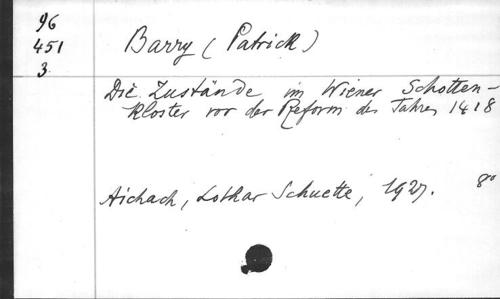 96
451
3
Barry (Patrick)
Die Zustände im Wiener Schotten-
kloster vor der Reform des Jahres 1418
Aichach, Lothar Schuette, 1927. 8°